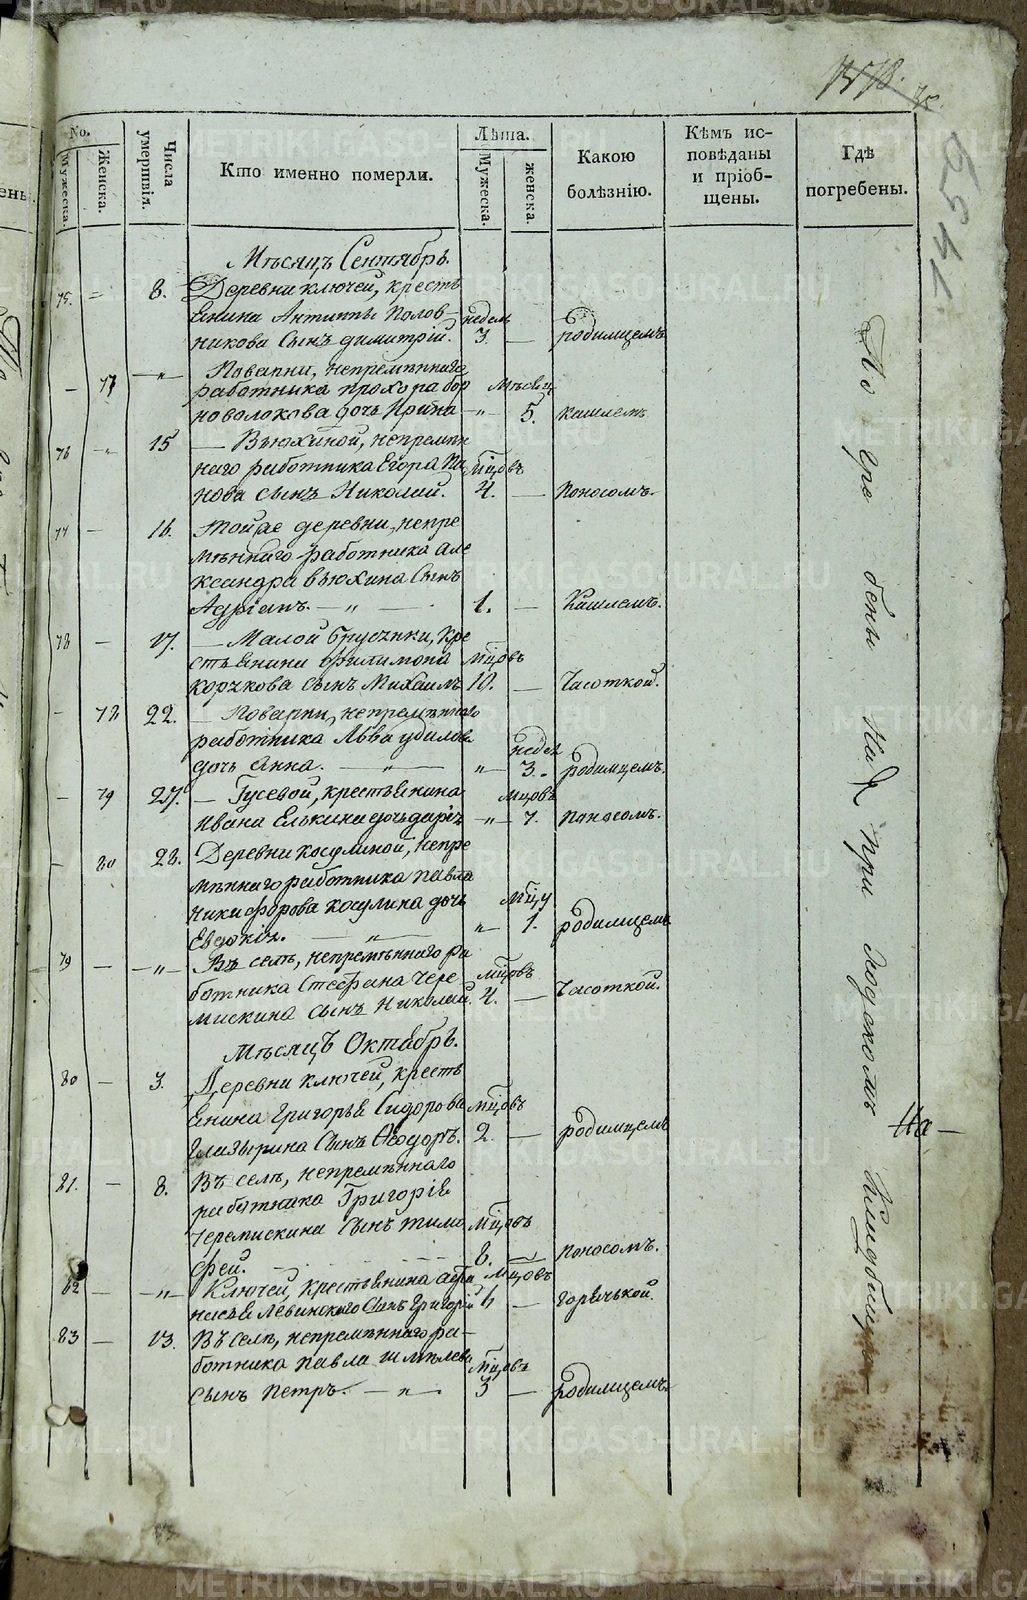 75.
1459
No.
Мужеска.
Женска.
Числа умертвія.
Кто именно померли.
Лѣта.
Мужеска.
женска.
Какою болѣзнію.
Кѣмъ исповѣданы и пріобщены.
Гдѣ погребены.
Мѣсяцъ Сентябрь.
75. = 8. Деревни ключей, кресть
янина Антипы Полов- недел
никова Сынъ димитрій. 3. — родимцемъ
— 77 —"— Поварни, непремѣннаго
работника прохора бор мѣсяц
новолокова дочь Ирина —"— 5. кашлемъ
76 " 15 — Вьюхиной, непремѣн
наго работника Егора Па мцовъ
нова сынъ Николай. 4. — Поносомъ.
77 — 16. Тойже деревни, непре
мѣннаго работника але
ксандра вьюхина Сынъ
Адріанъ. —"— 1. — Кашлемъ.
78 — 17. — Малой брусянки, кре
стьянина филимона мцовъ
корчкова сынъ Михаилъ 10. — Чесоткой.
— 78 22. — Поварни, непремѣннаго
работника Льва удилова недел
дочь Анна. —"— —"— 3. родимцемъ.
— 79 27. — Гусевой, крестьянина мцовъ
Ивана Елькина дочь дарія —"— 7. Поносомъ.
— 80 28. Деревни косулиной, непре
мѣннаго работника павла
никифорова косулина дочь мцу
Евдокія. —"— —"— 1. родимцемъ
79 — —"— Въ селѣ, непремѣннаго ра
ботника Стефана Чере мцовъ
мискина сынъ Николай. 4. — Чесоткой.
Мѣсяцъ Октябрь.
80 — 3. Деревни ключей, кресть
янина Григорья Сидорова мцовъ
Глазырина Сынъ Ѳеодоръ. 2. — родимцемъ
81. — 8. Въ селѣ, непремѣннаго
работника Григорія
черемискина Сынъ тимо мцовъ
фей. 8. — поносомъ.
82 — —"— Ключей, крестьянина афа мцовъ
насья Левинскаго Сынъ Григорій 6 — горячькой.
83 — 13. Въ селѣ, непремѣннаго ра-
ботника павла шмелева мцовъ
сынъ Петръ. —"— 3 — родимцемъ.
По гре бены На при хоцкомъ Кладбищѣ—
На—
METRIKI.GASO-URAL.RU